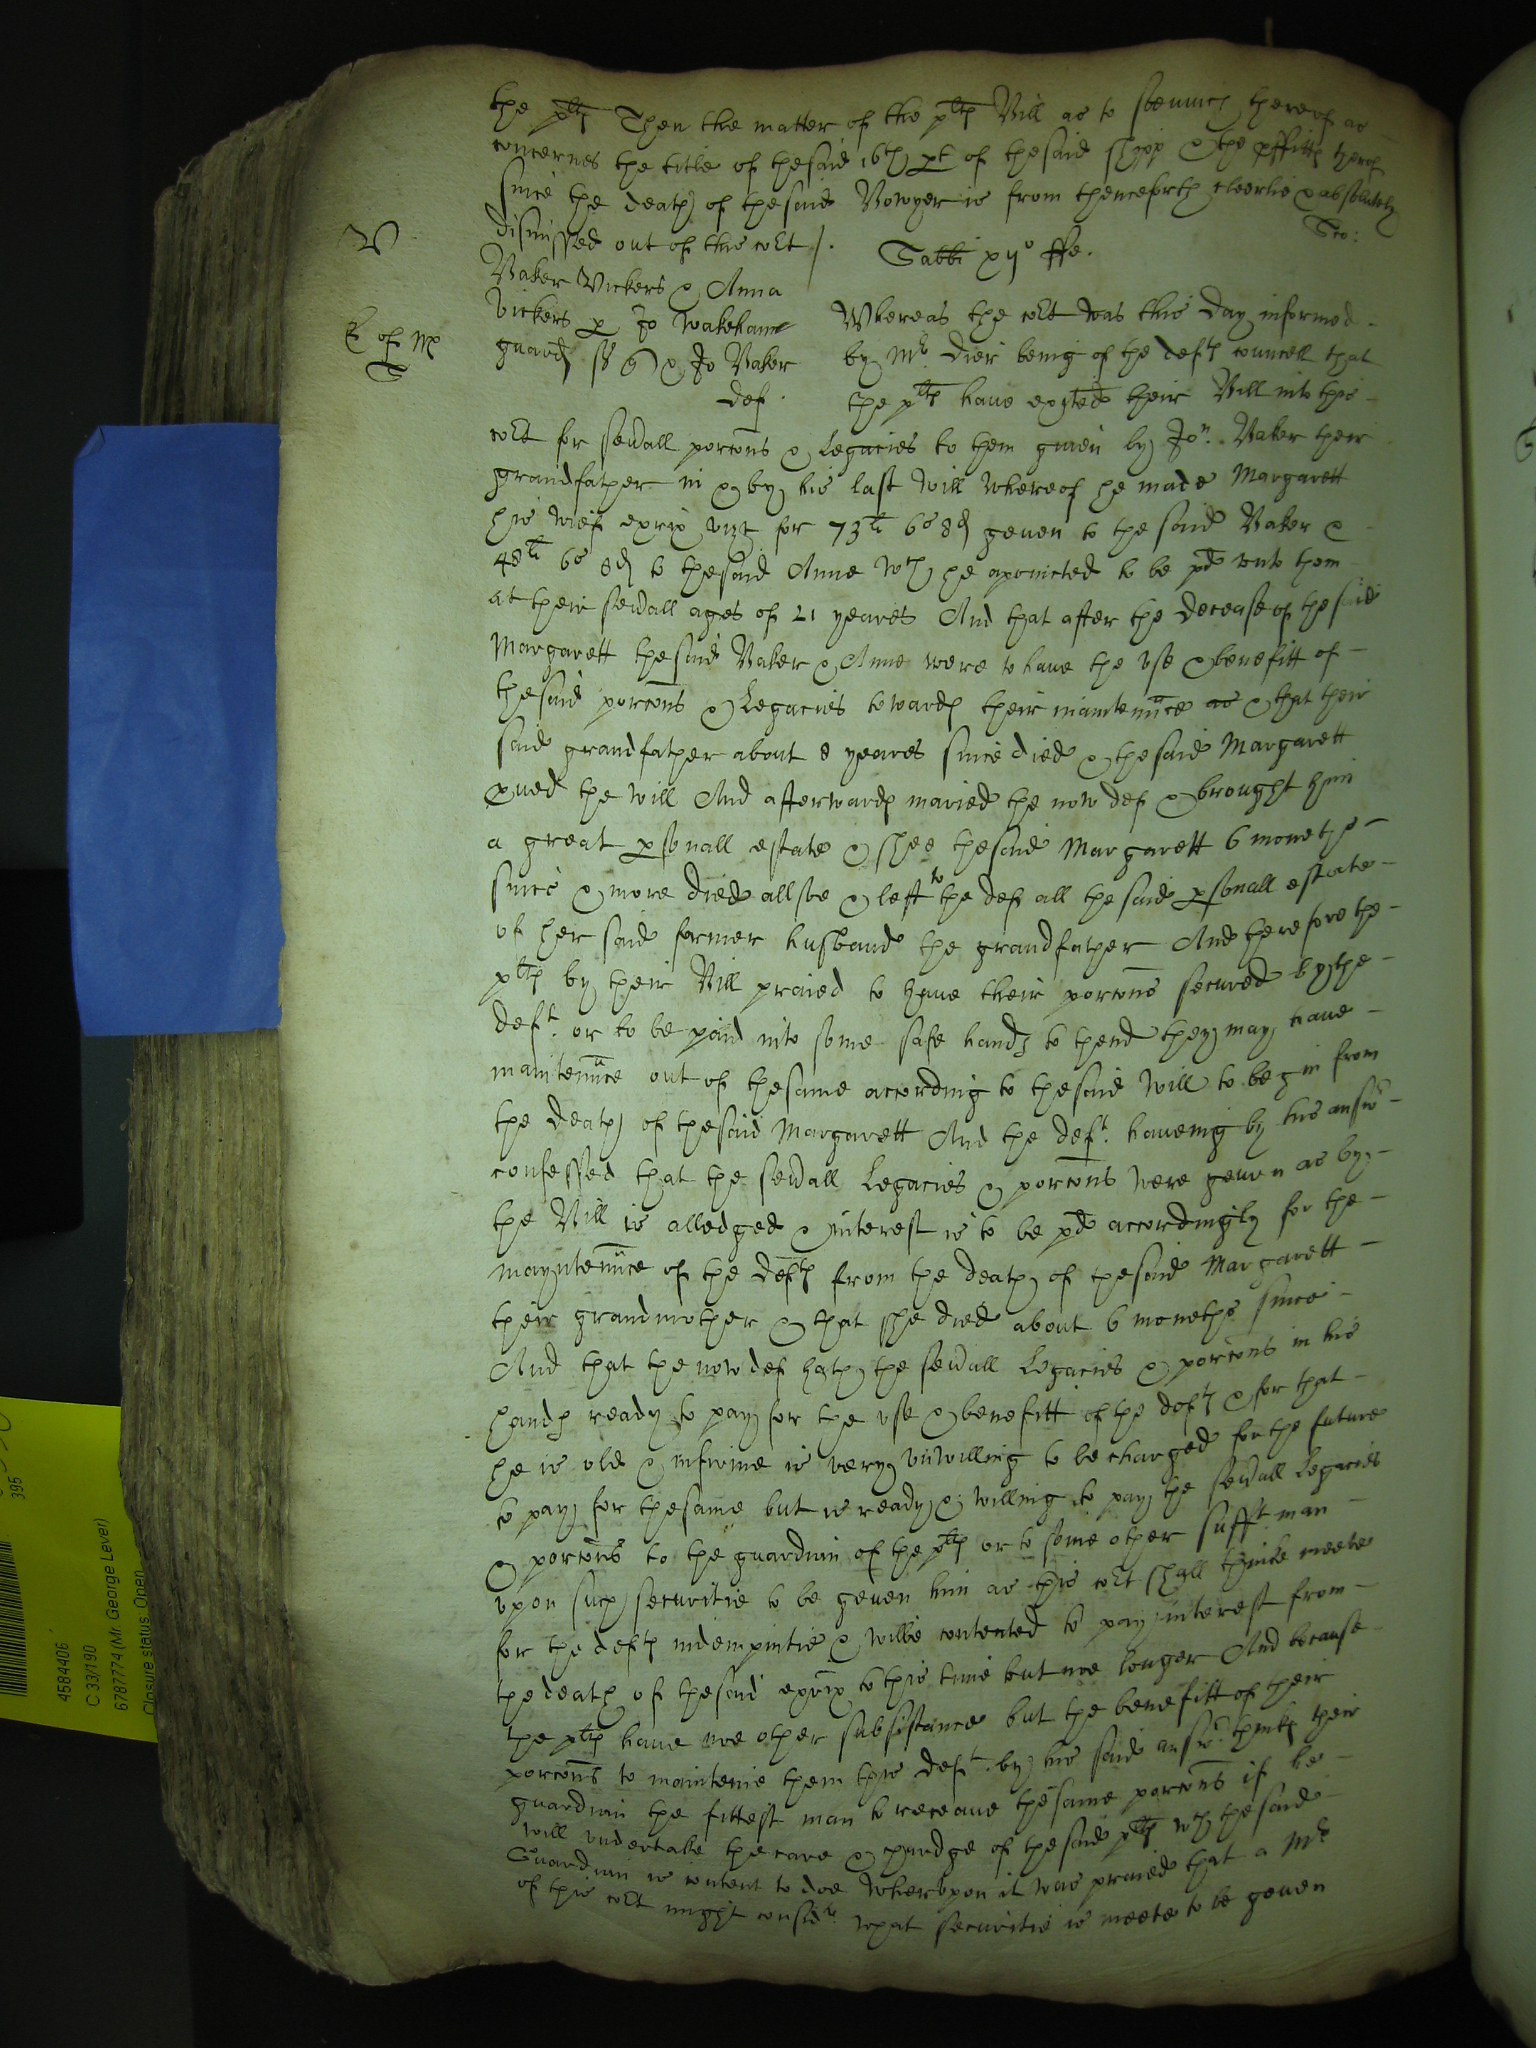 the pltf Then the matter of the pltf Bill as to soe much thereof as
concernes the title of thesaid 16th pt of thesaid shipp & the pffitts therof
since the death of thesaid Bowyer is from thenceforth cleerlie & absolutely
dismissed out of this cort /.
Sabbi xijo ffe.
V
Baker Vickers & Anna
Vickers p Jo Wakeham
guard & Jo Baker
def.
E of M
S
Whereas the cort was this day informed
by Mr Dier being of the defts councell that
the pltf have exhited their Bill into this
cort for sevall porcons & Legacies to them given by Jon. Baker their
grandfather in & by his last will whereof he made Margarett
his wief exrix vizt for 73li 6s 8d geven to the said Baker &
48li 6s 8d to thesaid Anne wch he apointed to be pd unto them
at their sevall ages of 21 yeares And that after the decease of thesaid
Margarett thesaid Baker & Anne were to have the use & benefitt of
thesaid porcons & Legacies towards their maintennce as & that their
said grandfather about 8 yeares since died & thesaid Margarett
pved the will And afterwards maried the now def & brought him
a great psonall estate & shee thesaid Margarett 6 moneths
since & more died allsoe & left to the def all the said psonall estate
of her said former husband the grandfather And therefore the
pltf by their Bill praied to have their porcons secured by the
deft. or to be paid into some safe hands to thend they may have
maintennce out of thesame according to thesaid will to begin from
the death of thesaid Margarett And the deft. haveing by his answr
confessed that the sevall Legacies & porcons were geven as by
the Bill is alledged & interest is to be pd accordingly for the
mayntennce of the defts from the death of thesaid Margarett
their grandmother & that she died about 6 moneths since
And that the now def hath the sevall Legacies & porcons in his
hands ready to pay for the use & benefitt of the defts & for that
he is old & infirme is very unwilling to be charged for the future
to pay for thesame but is ready & willing to pay the sevall Legacies
& porcons to the guardian of the pltf or to some other sufft man
upon such securitie to be geven him as this cort shall thinke meete
for the defts indempnitie & wilbe contented to pay interest from
the death of thesaid exrix to this time but noe longer And because
the pltf have noe other subsistance but the benefitt of their
porcons to mainteine them this deft. by his said answr. thinks their
guardian the fittest man to receave thesame porcons if he
will undertake the care & chardge of thesaid pltf wch thesaid
Guardian is content to doe Wherupon it was praied that a Mr
of this cort might considr. what securitie is meete to be geven
4584406
C 33/190
6787774 (Mr. George Lever)
Closure status: Open
395